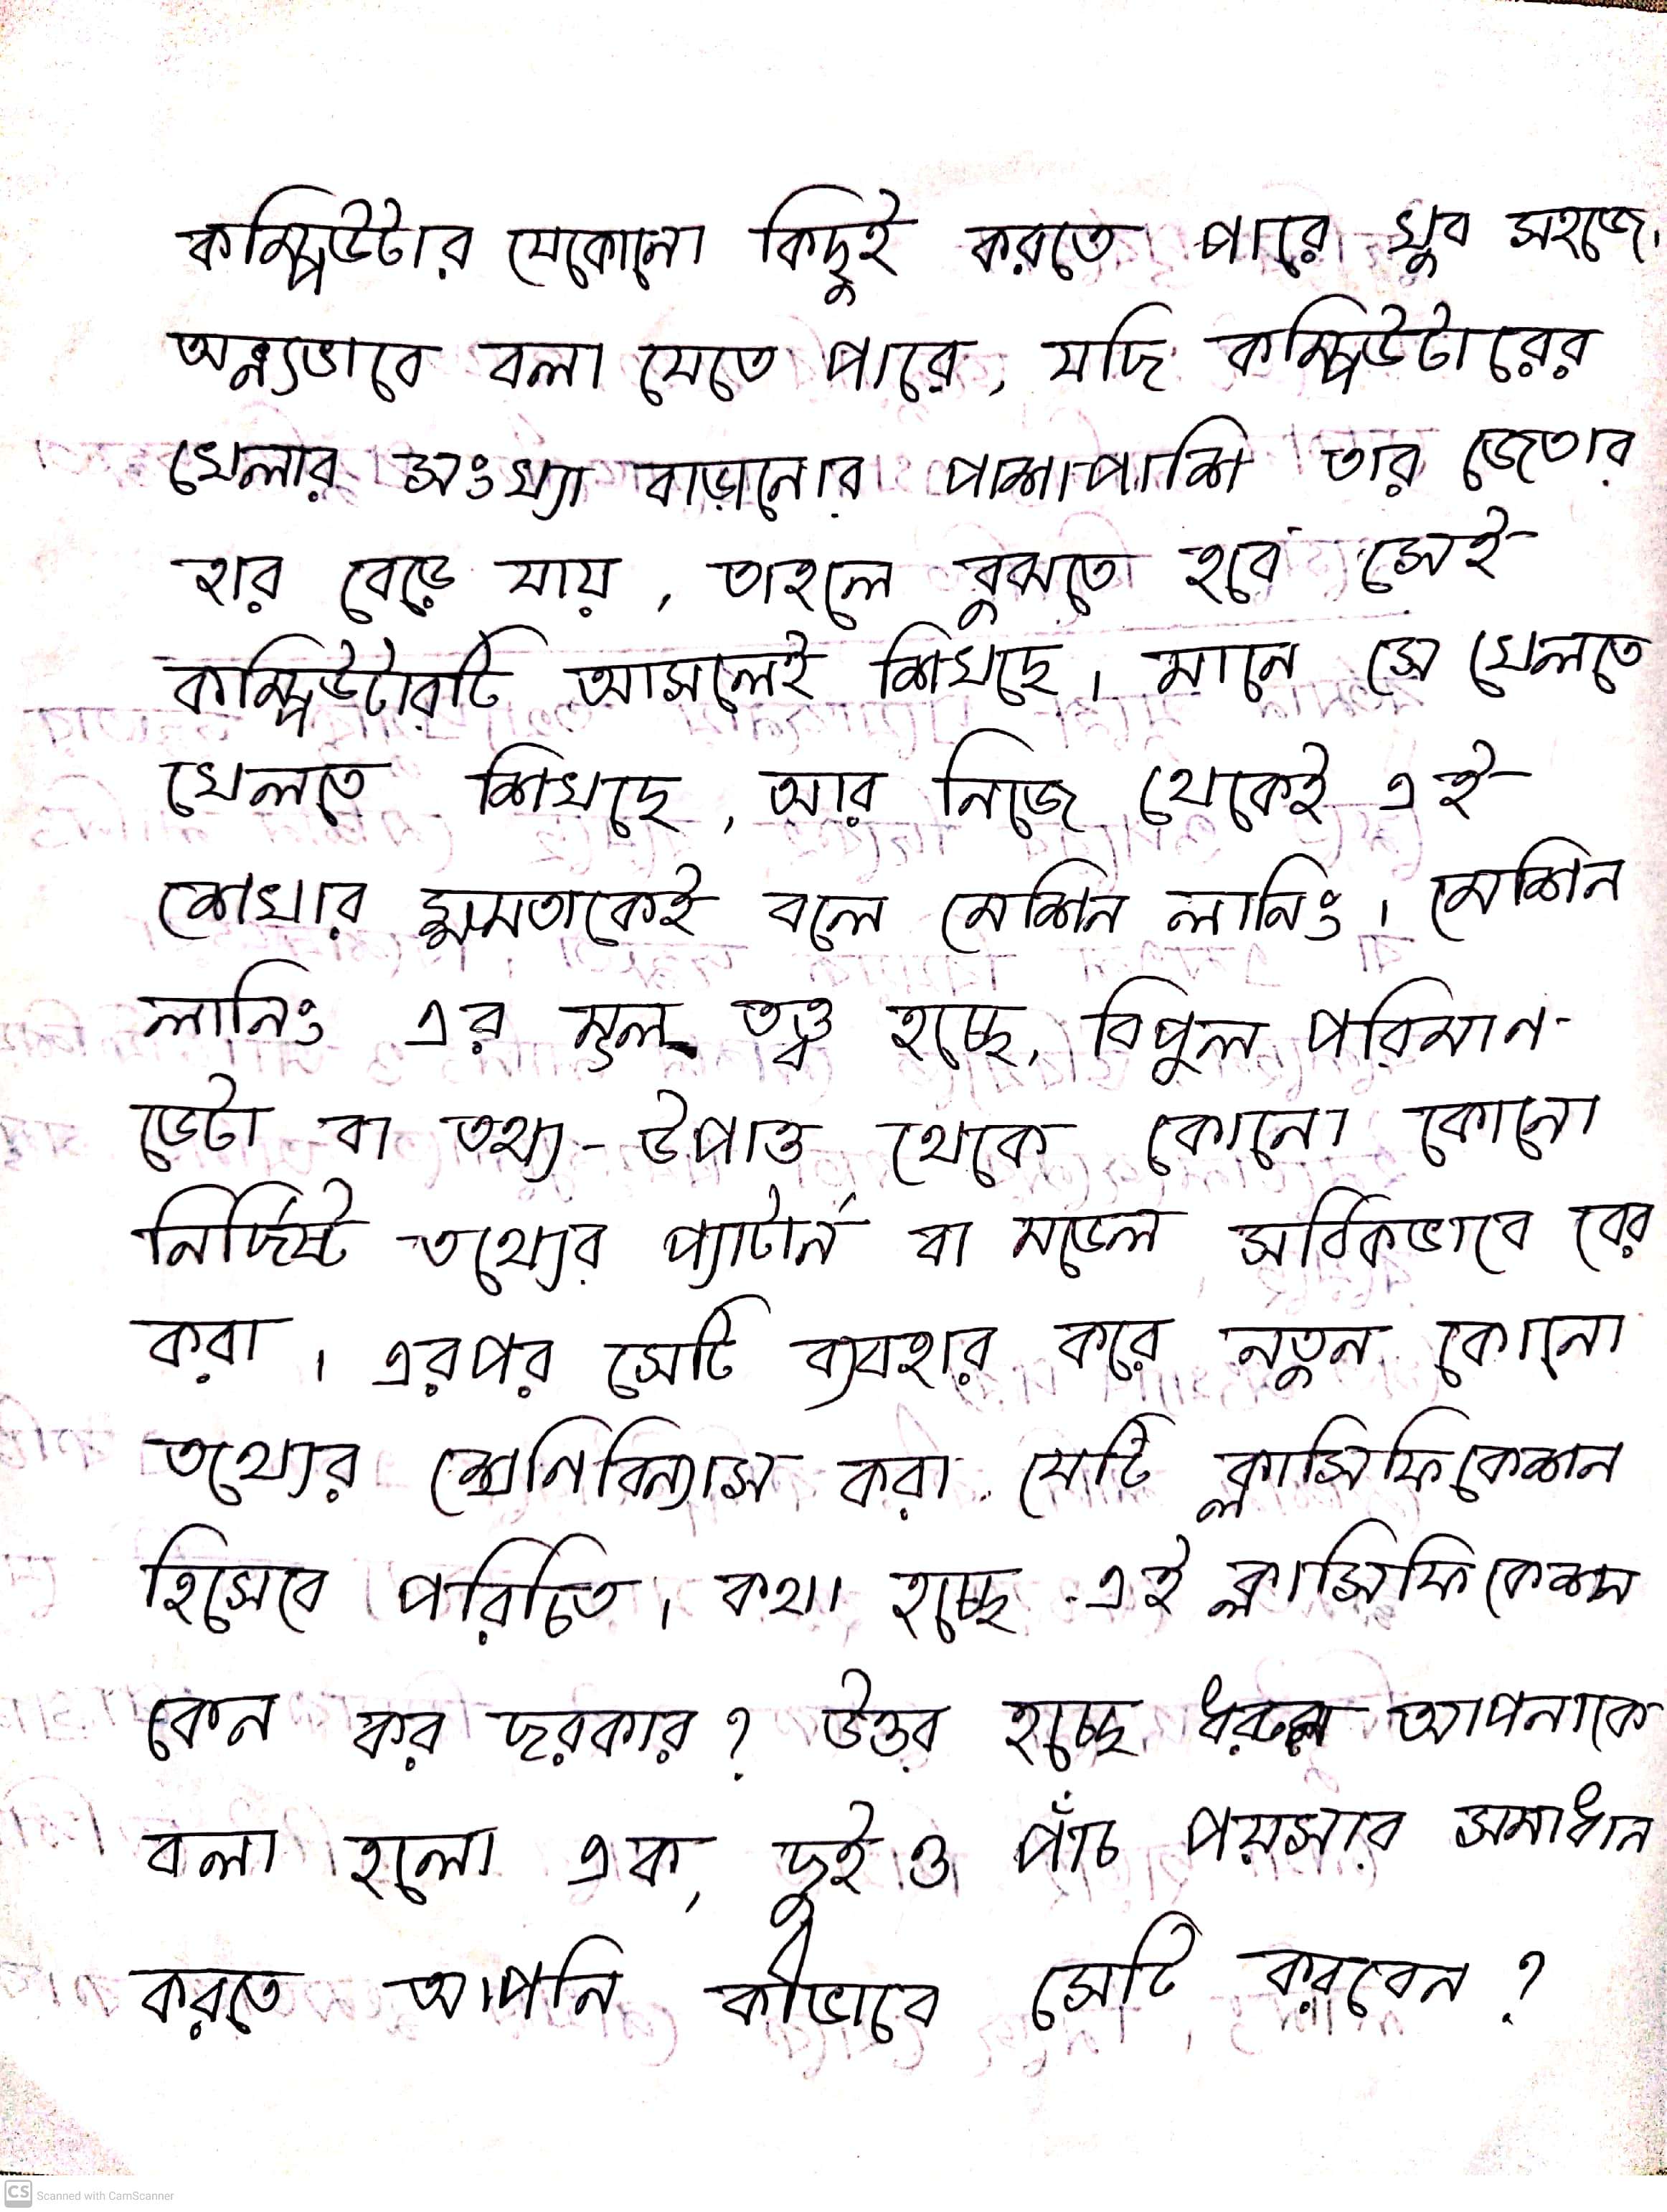 কম্পিউটার যেকোনো কিছুই করতে পারে খুব সহজে।
অন্যভাবে বলা যেতে পারে, যদি কম্পিউটারের
খেলার সংখ্যা বাড়ানোর পাশাপাশি তার জেতার
হার বেড়ে যায়, তাহলে বুঝতে হবে সেই
কম্পিউটারটি আসলেই শিখছে। মানে সে খেলতে
খেলতে শিখছে, আর নিজে থেকেই এই
শেখার ক্ষমতাকেই বলে মেশিন লানিং। মেশিন
লানিং এর মূল তত্ত্ব হচ্ছে, বিপুল পরিমান
ডেটা বা তথ্য-উপাত্ত থেকে কোনো কোনো
নির্দিষ্ট তথ্যের প্যাটার্ন বা মডেল সার্বিকভাবে বের
করা। এরপর সেটি ব্যবহার করে নতুন কোনো
তথ্যের শ্রেনিবিন্যাস করা যেটি ক্লাসিফিকেশন
হিসেবে পরিচিত। কথা হচ্ছে এই ক্লাসিফিকেশন
কেন কর দরকার? উত্তর হচ্ছে ধরুন আপনাকে
বলা হলো এক, দুই ও পাঁচ পয়সার সমাধান
করতে আপনি কীভাবে সেটি করবেন?
CS Scanned with CamScanner